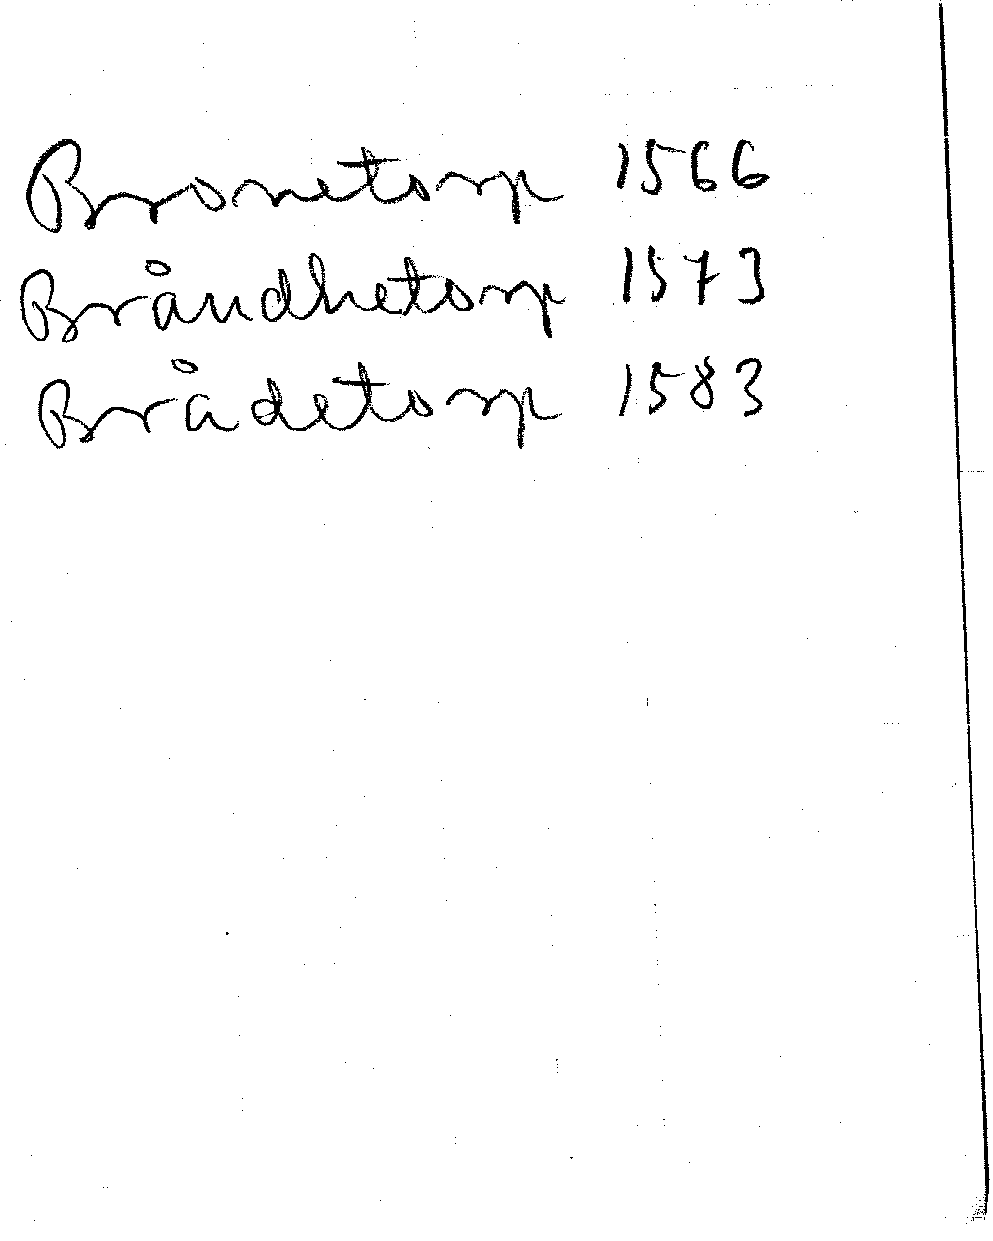 Bronetorp 1566
Bråndhetorp 1573
Brådetorp 1583